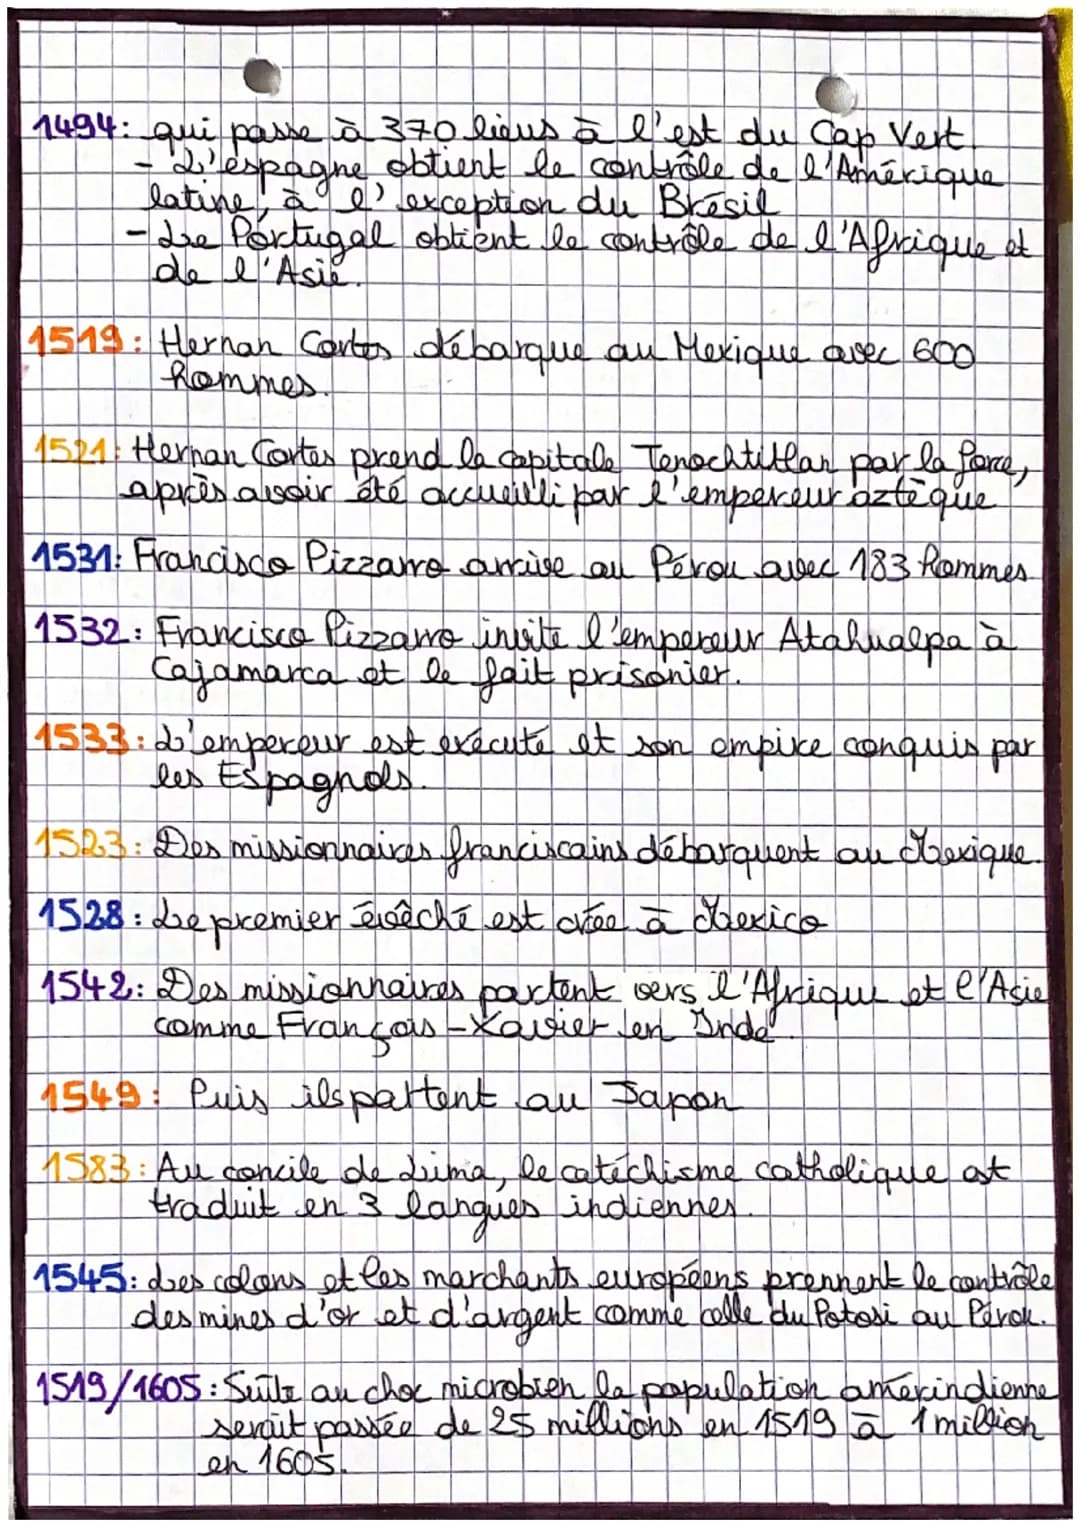 1494: qui passe à 370 lieus à l'est du Cap Vert.
- L'espagne obtient le contrôle de l'Amérique
latine, à l'exception du Brésil
- Le Portugal obtient le contrôle de l'Afrique et
de l'Asie.
1519: Hernan Cortes débarque au Mexique avec 600
hommes.
1521: Hernan Cortes prend la capitale Tenochtitlan par la force,
après avoir été accueilli par l'empereur aztèque
1531: Francisco Pizzarro arrive au Pérou avec 183 hommes
1532: Francisco Pizzarro invite l'empereur Atahualpa à
Cajamarca et le fait prisonier.
1533: L'empereur est exécuté et son empire conquis par
les Espagnols.
1523: Des missionnaires franciscains débarquent au Mexique.
1528: Le premier évêché est crée à Mexico
1542: Des missionnaires partent vers l'Afrique et l'Asie
comme François-Xavier en Inde
1549: Puis ils partent au Japon
1583: Au concile de Lima, le catéchisme catholique est
traduit en 3 langues indiennes.
1545: Les colons et les marchants européens prennent le contrôle
des mines d'or et d'argent comme celle du Potosi au Pérou.
1519/1605: Suite au choc microbien la population amérindienne
serait passée de 25 millions en 1519 à 1 million
en 1605.